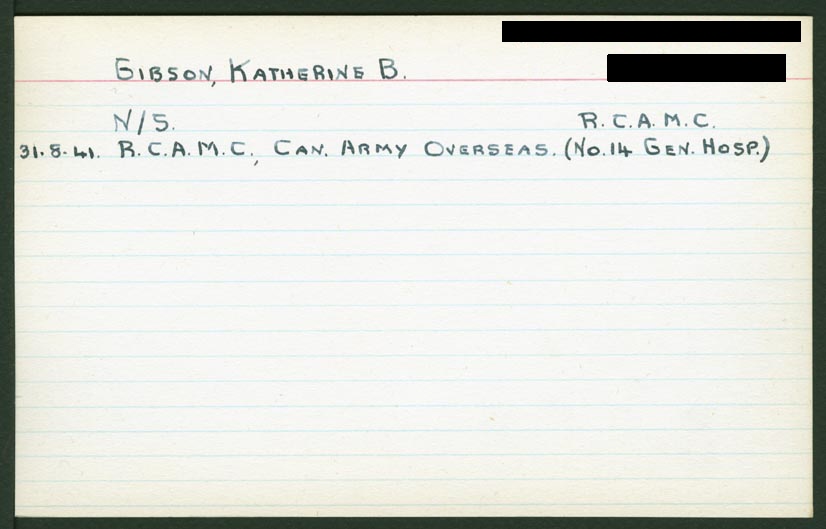 GIBSON, KATHERINE B.
N/S. R.C.A.M.C.
31.8.41. R.C.A.M.C., CAN. ARMY OVERSEAS. (NO.14 GEN. HOSP.)